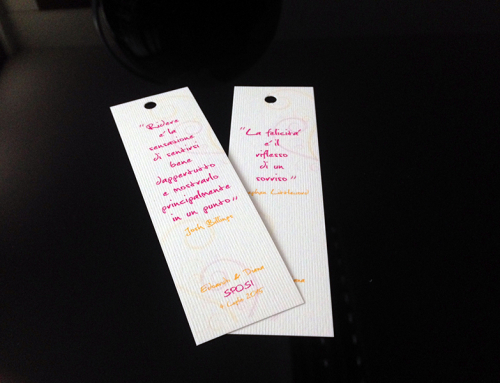 "Ridere
e' la
sensazione
di sentirsi
bene
dappertutto
e mostrarlo
principalmente
in un punto"
Josh Billings
SPOSI
Luglio 2015
"La felicita'
e' il
riflesso
di un
sorriso"